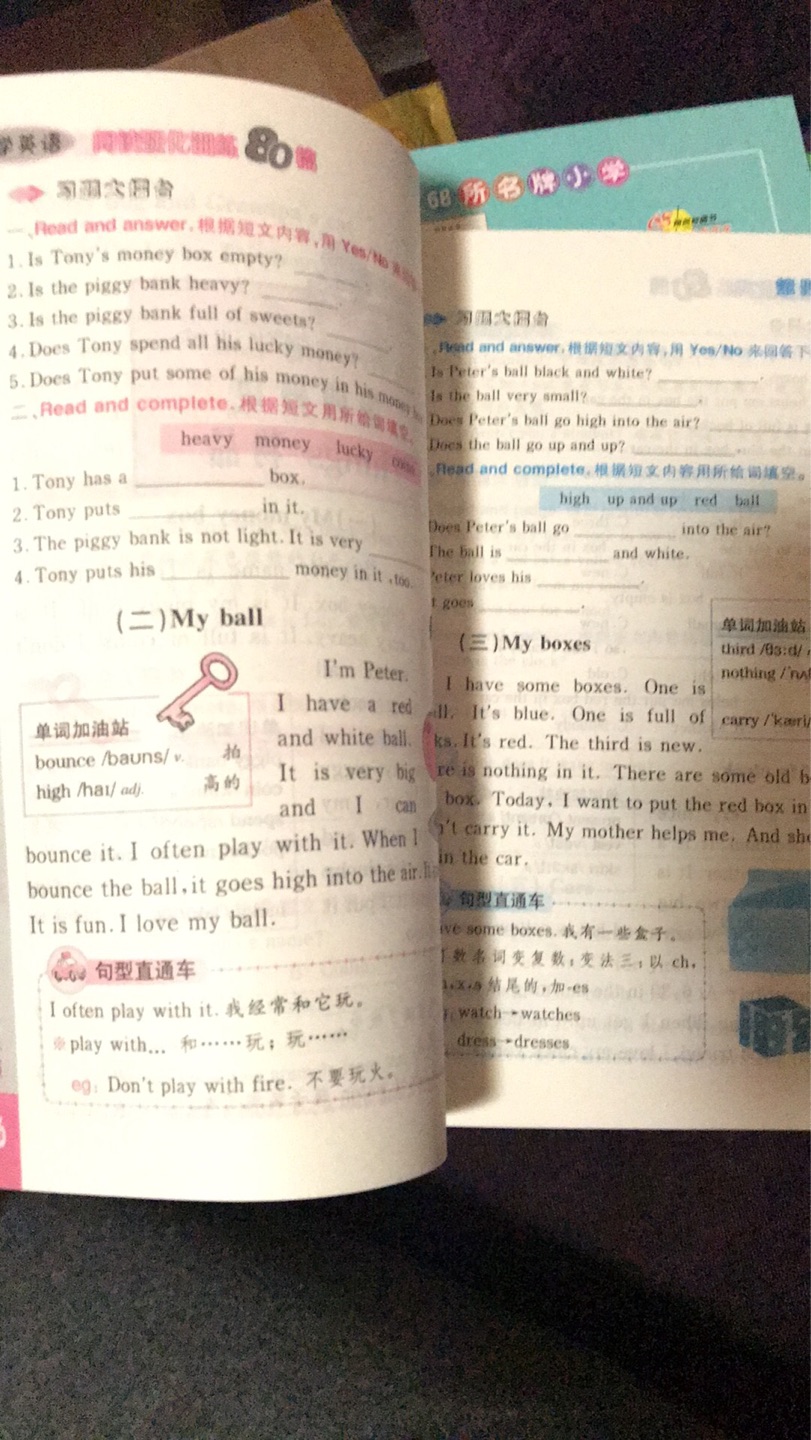 学英语
80篇
一、Read and answer. 根据短文内容，用 Yes/No 来
1. Is Tony's money box empty? ________
2. Is the piggy bank heavy? ________.
3. Is the piggy bank full of sweets? ________.
4. Does Tony spend all his lucky money?
5. Does Tony put some of his money in his money
二、Read and complete. 根据短文用所给词填空。
heavy money lucky
1. Tony has a ________ box.
2. Tony puts ________ in it.
3. The piggy bank is not light. It is very ________
4. Tony puts his ________ money in it, too.
(二)My ball
I'm Peter.
I have a red
and white ball.
It is very big
and I can
bounce it. I often play with it. When I
bounce the ball, it goes high into the air.
It is fun. I love my ball.
单词加油站
bounce /baʊns/ v. 拍
high /haɪ/ adj. 高的
句型直通车
I often play with it. 我经常和它玩。
※play with... 和……玩；玩……
eg: Don't play with fire. 不要玩火。
68所名牌小学
Read and answer. 根据短文内容，用 Yes/No 来回答下
Is Peter's ball black and white? ________.
Is the ball very small? ________.
Does Peter's ball go high into the air? ________
Does the ball go up and up? ________.
Read and complete. 根据短文内容用所给词填空。
high up and up red ball
Does Peter's ball go ________ into the air?
The ball is ________ and white.
Peter loves his ________.
goes ________.
(三)My boxes
I have some boxes. One is
It's blue. One is full of
It's red. The third is new.
is nothing in it. There are some old
box. Today, I want to put the red box in
carry it. My mother helps me. And she
in the car.
单词加油站
third /θɜːd/
nothing
carry /ˈkæri/
句型直通车
some boxes. 我有一些盒子。
数名词变复数：变法三：以 ch,
x,s 结尾的，加-es
watch→watches
dress→dresses